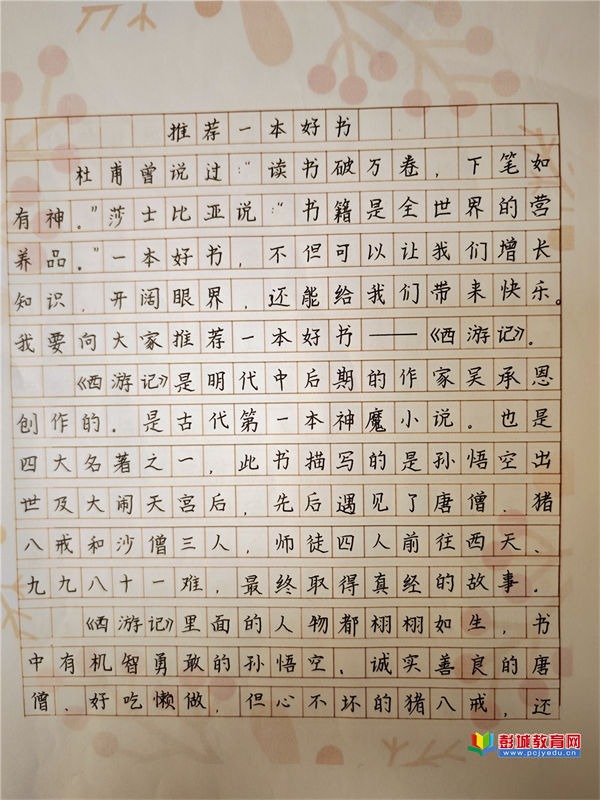 推荐一本好书
杜甫曾说过:“读书破万卷,下笔如
有神。”莎士比亚说:“书籍是全世界的营
养品。”一本好书,不但可以让我们增长
知识,开阔眼界,还能给我们带来快乐。
我要向大家推荐一本好书——《西游记》.
《西游记》是明代中后期的作家吴承恩
创作的.是古代第一本神魔小说。也是
四大名著之一,此书描写的是孙悟空出
世及大闹天宫后,先后遇见了唐僧、猪
八戒和沙僧三人,师徒四人前往西天、
九九八十一难,最终取得真经的故事.
《西游记》里面的人物都栩栩如生,书
中有机智勇敢的孙悟空、诚实善良的唐
僧、好吃懒做,但心不坏的猪八戒,还
彭城教育网
www.pcjyedu.cn